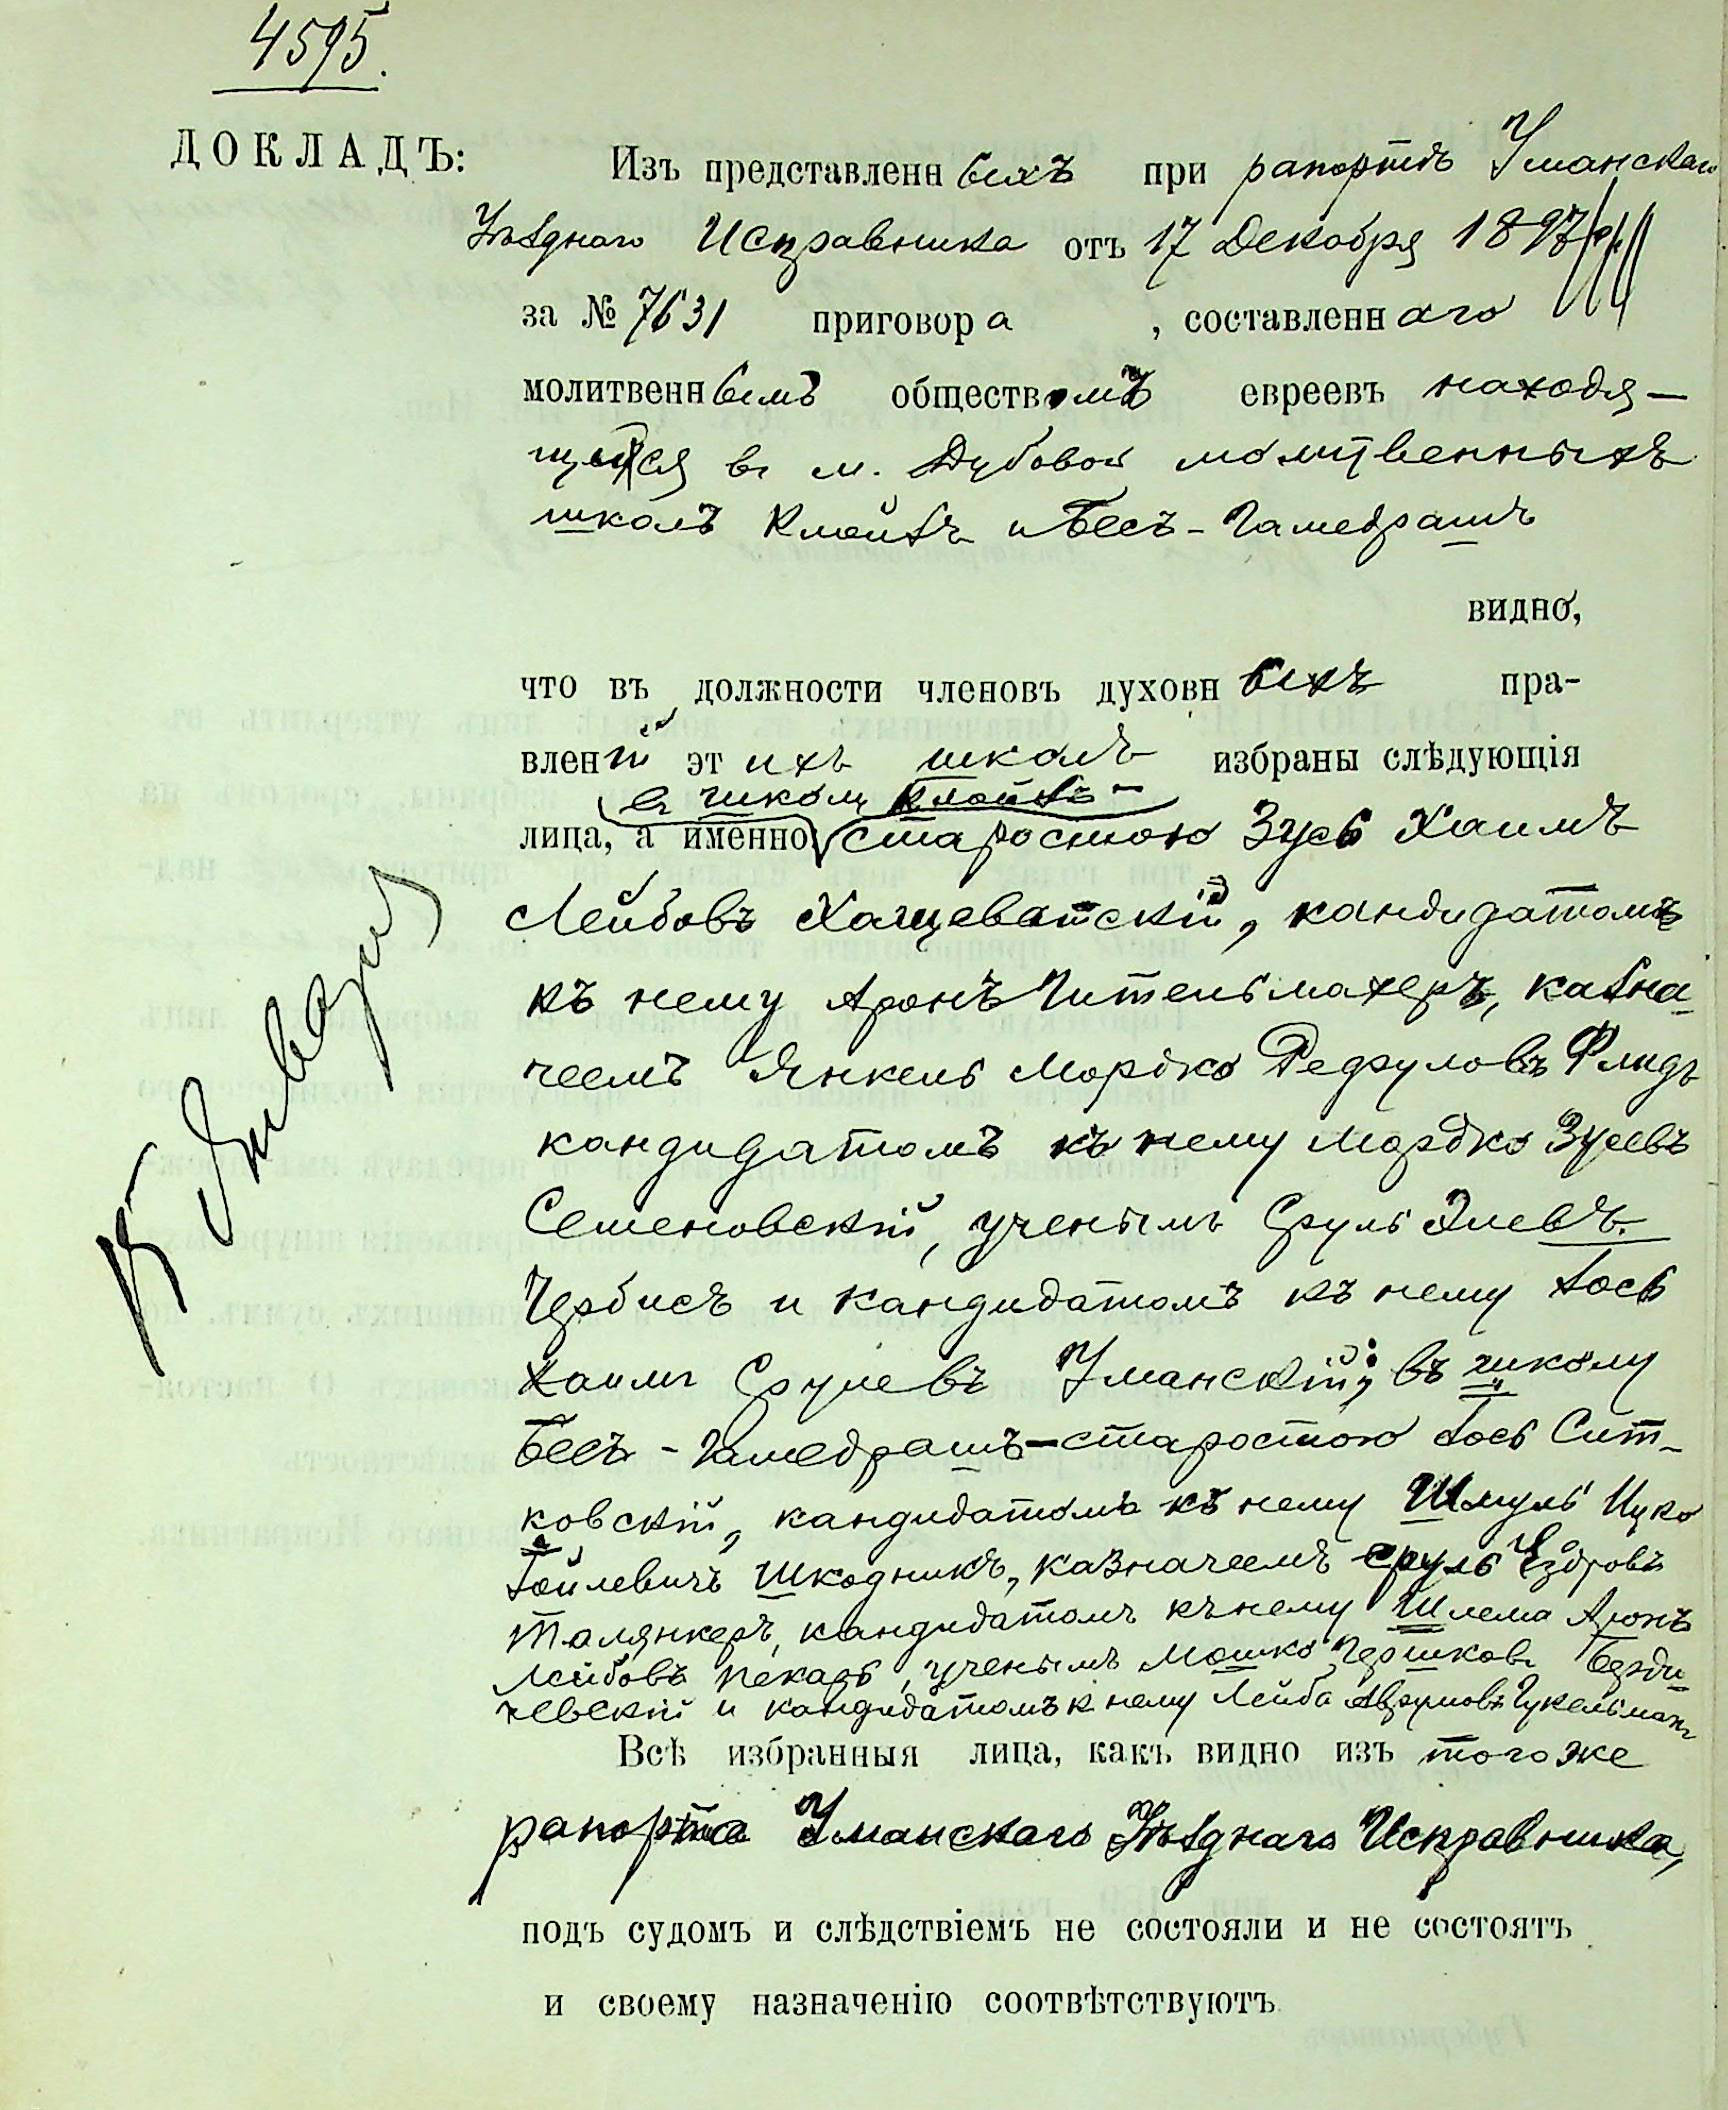 4595.
ДОКЛАДЪ:
Изъ представленныхъ при рапортѣ Уманскаго
Уѣзднаго Исправника отъ 17 Декабря 1897
за № 7631 приговора, составленнаго
молитвеннымъ обществомъ евреевъ находя-
щихся въ м. Дубовой молитвенныхъ
школъ Клойзъ и Бесъ-Гамедрашъ
видно,
что въ должности членовъ духовныхъ пра-
вленій этихъ школъ избраны слѣдующія
въ школу Клойзъ-
лица, а именно старостою Зусь Хаимъ
Лейбовъ Хащеватскій, кандидатомъ
къ нему Аронъ Чительмахеръ, казна-
чеемъ Янкель Мордко Сруловъ Флидъ
кандидатомъ къ нему Мордко Зусевъ
Семеновскій, ученымъ Сруль Элевъ
и кандидатомъ къ нему Іось
Хаимъ Срулевъ Уманскій; въ школу
Бесъ-Гамедрашъ-старостою Іось Сит-
ковскій, кандидатомъ къ нему Шмуль Ицко
Іойлевичъ Шкодникъ, казначеемъ Сруль
Талянкеръ, кандидатомъ къ нему Шлема Аронъ
Лейбовъ Пекарь, ученымъ Мошко Гершковъ Берди-
чевскій и кандидатомъ к нему Лейба Аврумовъ Цукельманъ
Всѣ избранныя лица, какъ видно изъ того же
рапорта Уманскаго Уѣзднаго Исправника,
подъ судомъ и слѣдствіемъ не состояли и не состоятъ
и своему назначенію соотвѣтствуютъ
15 Января